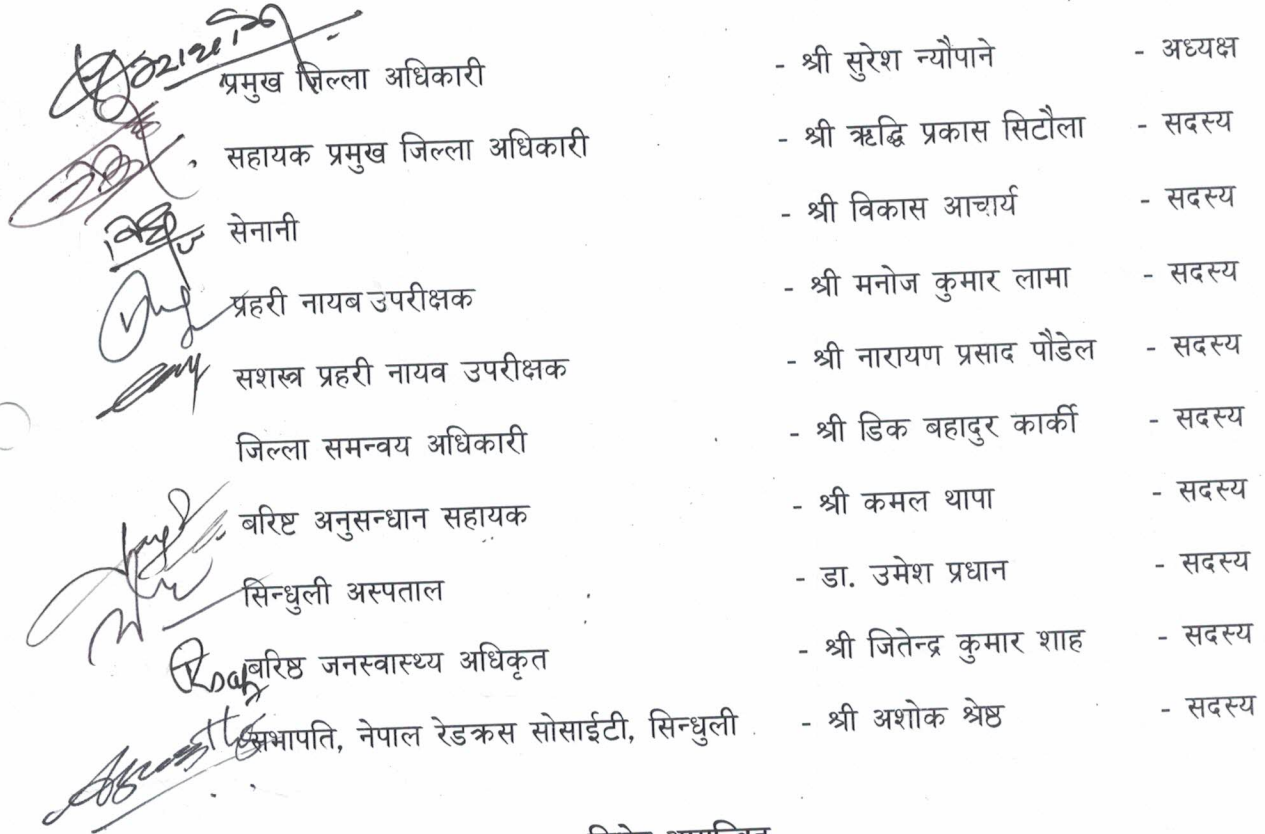 प्रमुख जिल्ला अधिकारी - श्री सुरेश न्यौपाने - अध्यक्ष
सहायक प्रमुख जिल्ला अधिकारी - श्री ऋद्धि प्रकास सिटौला - सदस्य
सेनानी - श्री विकास आचार्य - सदस्य
प्रहरी नायब उपरीक्षक - श्री मनोज कुमार लामा - सदस्य
सशस्त्र प्रहरी नायव उपरीक्षक - श्री नारायण प्रसाद पौडेल - सदस्य
जिल्ला समन्वय अधिकारी - श्री डिक बहादुर कार्की - सदस्य
बरिष्ट अनुसन्धान सहायक - श्री कमल थापा - सदस्य
सिन्धुली अस्पताल - डा. उमेश प्रधान - सदस्य
बरिष्ठ जनस्वास्थ्य अधिकृत - श्री जितेन्द्र कुमार शाह - सदस्य
सभापति, नेपाल रेडक्रस सोसाईटी, सिन्धुली - श्री अशोक श्रेष्ठ - सदस्य